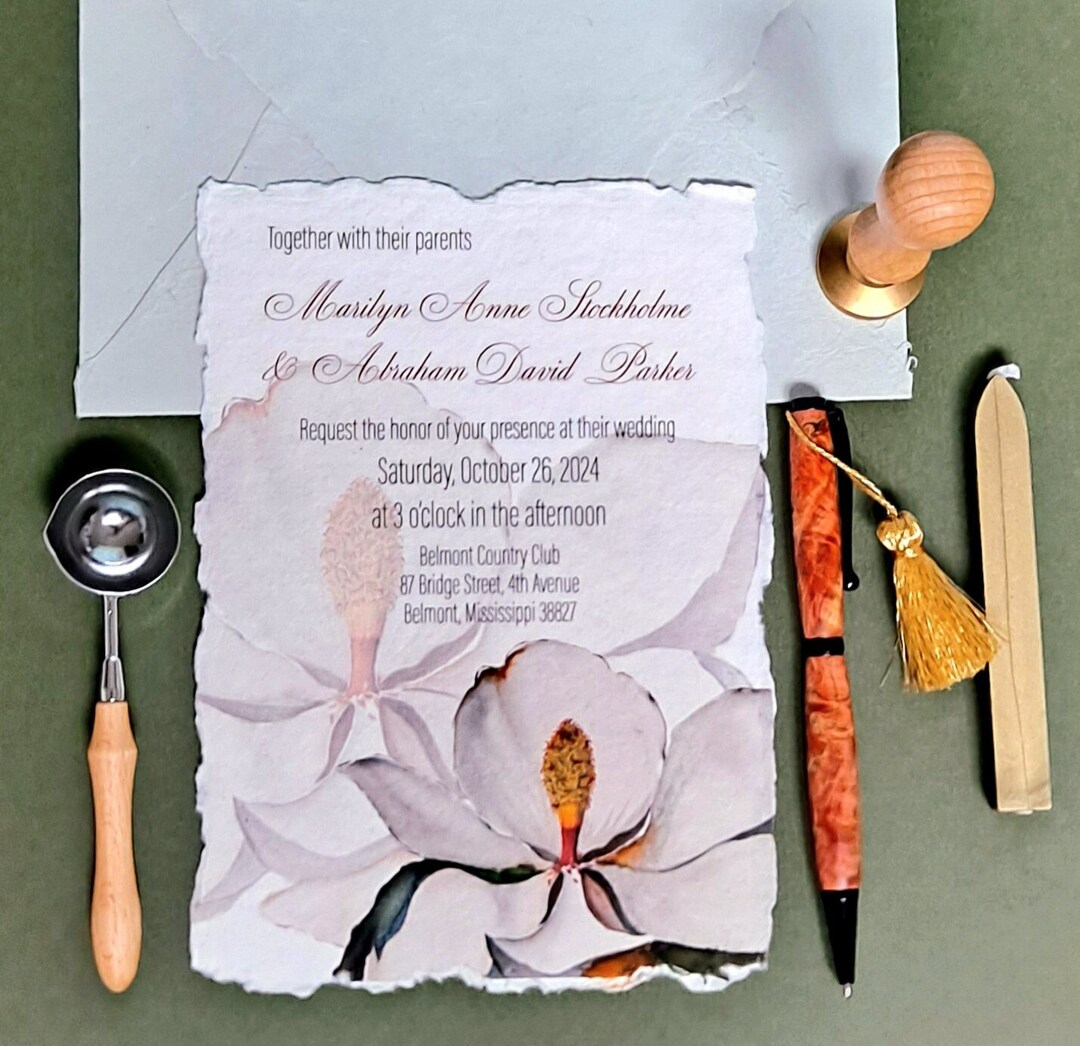 Together with their parents
Marilyn Anne Stockholme
& Abraham David Parker
Request the honor of your presence at their wedding
Saturday, October 26, 2024
at 3 o'clock in the afternoon
Belmont Country Club
87 Bridge Street, 4th Avenue
Belmont, Mississippi 38827